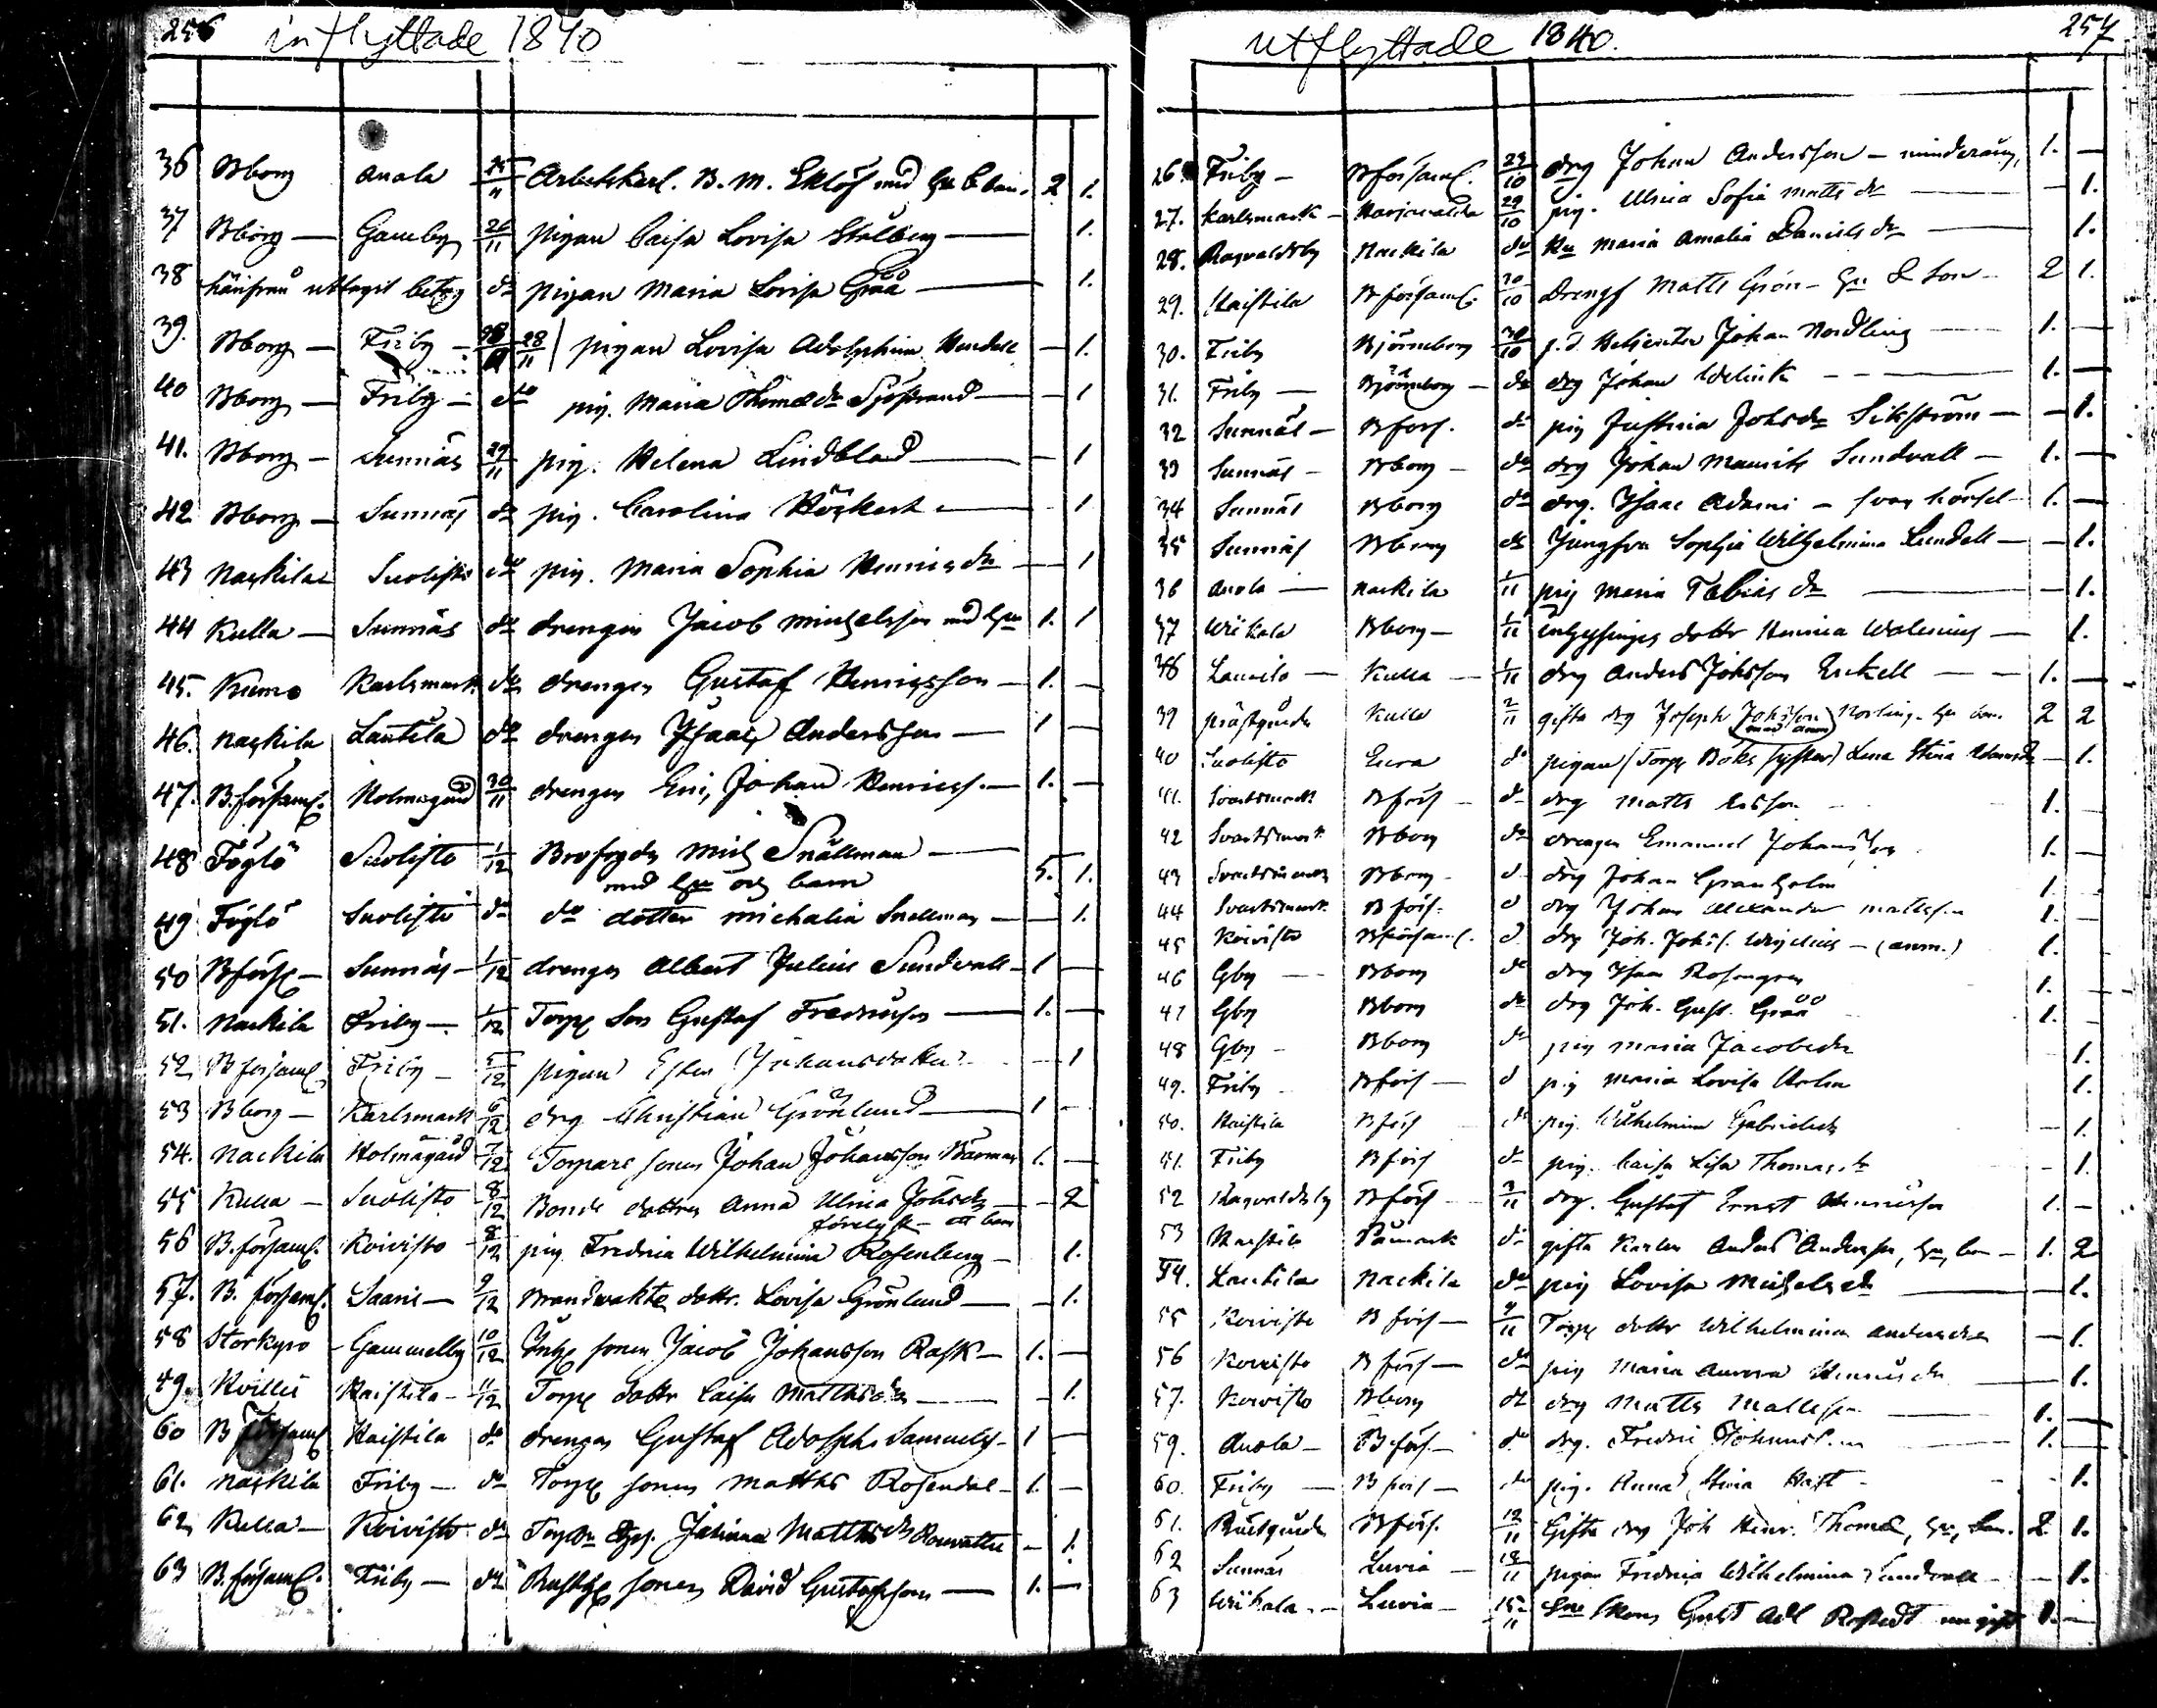 256 inflyttade 1840
36 Bborg Anola 25/11 Arbetskarl. B. M. Eklöf med hu 2 1.
37 Bborg — Gamby 26/11 pigan Caisa Lovisa Stålberg — 1.
38 härifrån uttagit betyg do pigan Maria Lovisa Gråå — 1.
39. Bborg — Friby — 28/11 pigan Lovisa Adolphina — 1.
40 Bborg — Friby — do pig. Maria Thomædr Sjöstrand — 1
41. Bborg — Sunnäs 29/11 pig. Helena Lindblad — 1
42 Bborg — Sunnäs do pig. Carolina — 1
43 Nackila Suolisto do pig. Maria Sophia Henricsdr — 1
44 Kulla — Sunnäs do drengen Jacob Michelsson med hu 1. 1
45. Kumo Karlsmark do drengen Gustaf Henricsson — 1. —
46. Nackila Lautila do drengen Isaac Andersson — 1 —
47. B. församl. Holmagård 30/11 drengen Eric Johan Henricss. — 1. —
48 Föglö Suolisto 1/12 Brofogden Mich Snällman —
med hu och barn 5. 1.
49 Föglö Suolisto do do dotter Michalia Snellman — — 1.
50 Bförs — Sunnäs — 1/12 drengen Albert Julius Sundvall — 1 —
51. Nackila Friby — 1/12 Torp Son Gustaf Fredricsson — 1. —
52 B församl Friby — 5/12 pigan Ester Johansdotter — 1
53 Bborg — Karlsmark 6/12 drg Christian Grönlund — 1 —
54. Nackila Holmagård 7/12 Torpare sonen Johan Johansson 1. —
55 Kulla — Suolisto 8/12 Bonde dottren Anna Ulrica Johsdr — 2
förelyst — ett barn
56 B. församl. Koivisto 8/12 pig Fredrica Wilhelmina Rosenberg — 1.
57. B. församl. Saaris — 9/12 Brandvakts dottr. Lovisa Grönlund — — 1.
58 Storkyro — Gammelby 10/12 sonen Jacob Johansson Rask — 1. —
49. Haistila — 11/12 Torp dottr Caisa Matthsdr — 1.
60 B församl Haistila do drengen Gustaf Adolph Samuelss — 1 —
61. Nackila Friby — do Torp sonen Matths Rosendal — 1. —
62 Kulla — Koivisto do Johanna Matthsdr — 1.
63 B. församl. Friby — do sonen David Gustafsson — 1. —
utflyttade 1840. 257
26. Friby — B församl. 29/10 drg Johan Andersson — minderårig, 1. —
27. Karlsmark — 29/10 pig. Ulrica Sofia Matts dr — 1.
28. Ragvaldsby Nackila do Maria Amalia Daniels dr — 1.
29. Haistila B församl. 30/10 Drengf Matts Grön — hu & Son — 2 1.
30. Friby Björneborg 30/10 f. d. Betjenten Johan Nordling — 1. —
31. Friby — Björneborg — do drg Johan — 1. —
32 Sunnäs — B förs. do pig Justina Johsdr Sikström — — 1.
33 Sunnäs — Bborg — do drg Johan Maurits Sundvall — 1. —
34 Sunnäs Bborg do drg. Isaac Adami — 1. —
35 Sunnäs Bborg do Jungfru Sophia Wilhelmina Lundell — — 1.
36 Anola — Nackila 1/11 pig Maria Tobias dr — 1.
37 Wiikala Bborg — 1/11 inhysinges dottr Henrica Wolenius — 1.
38 Lautila — Kulla — 1/11 drg Anders Johsson — 1. —
39 prästgården Kulla 2/11 gifta drg Joseph Johsson Norling. hu barn 2 2
40 Suolisto Eura do pigan (Torp Böks syster) Lena Stina — 1.
41. Svartsmark B förs — do drg Matts Ersson — 1. —
42 Svartsmark Bborg do drengen Emanuel Johansson 1. —
43 Svartsmark Bborg — do drg Johan Granholm 1 —
44 Svartsmark B förs. do drg Johan Alexander Mattss 1. —
45 Koivisto B församl. do drg Joh. Johss. — (anm.) 1.
46 Gby — Bborg do drg Isaac Rosengren 1. —
47 Gby Bborg do drg Joh. Gust. Gråå 1. —
48 Gby — Bborg do pig Maria Jacobsdr 1.
49. Friby — B förs — do pig Maria Lovisa 1.
50. Haistila B förs do pig. Wilhelmina Gabrielsdr — 1.
51. Friby B förs do pig. Caisa Lisa Thomasdr — 1.
52 Ragvaldsby B förs — 3/11 drg. Gustaf Ernst Henricsson 1. —
53 Haistila Påmark do gifta Karlen Anders Andersson, hu, barn — 1. 2
54. Lautila Nackila do pig Lovisa Michelsdr — — 1.
55 Koivisto B förs — 4/11 Torp dottr Wilhelmina Andersdr — 1.
56 Koivisto B förs — do pig Maria Aurora Henricsdr — 1.
57. Koivisto Bborg do drg Matts Mattss — 1. —
59. Anola — B. förs — do drg. Fredric Johanss — 1. —
60. Friby — B förs — do pig. Anna Stina — 1.
61. B förs. 12/11 Gifta drg Joh Henr. Thomæ, hu, barn. 2 1.
62 Sunnäs Luvia — 12/11 pigan Fredrica Wilhelmina Sundvall — — 1.
63 Wiikala — Luvia — 15/11 Gust Adl Rostedt 1. —